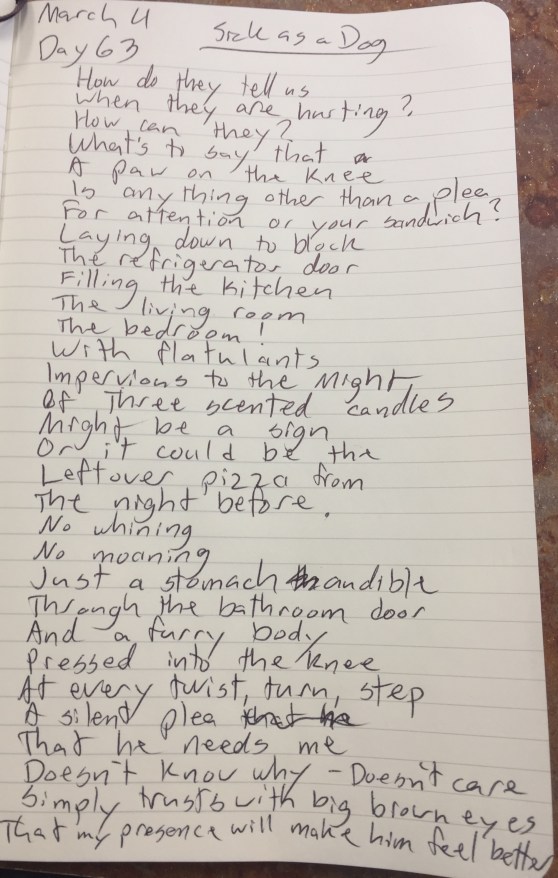 March 4
Sick as a Dog
Day 63
How do they tell us
When they are hurting?
How can they?
What's to say that a
A paw on the knee
Is anything other than a plea
For attention or your sandwich?
Laying down to block
The refrigerator door
Filling the kitchen
The living room
The bedroom!
With flatulants
Impervious to the Might
Of Three scented candles
Might be a sign
Or it could be the
Leftover pizza from
The night before.
No whining
No moaning
Just a stomach audible
Through the bathroom door
And a furry body
Pressed into the knee
At every twist, turn, step
A silent plea that he
That he needs me
Doesn't know why - Doesn't care
Simply trusts with big brown eyes
That my presence will make him feel better